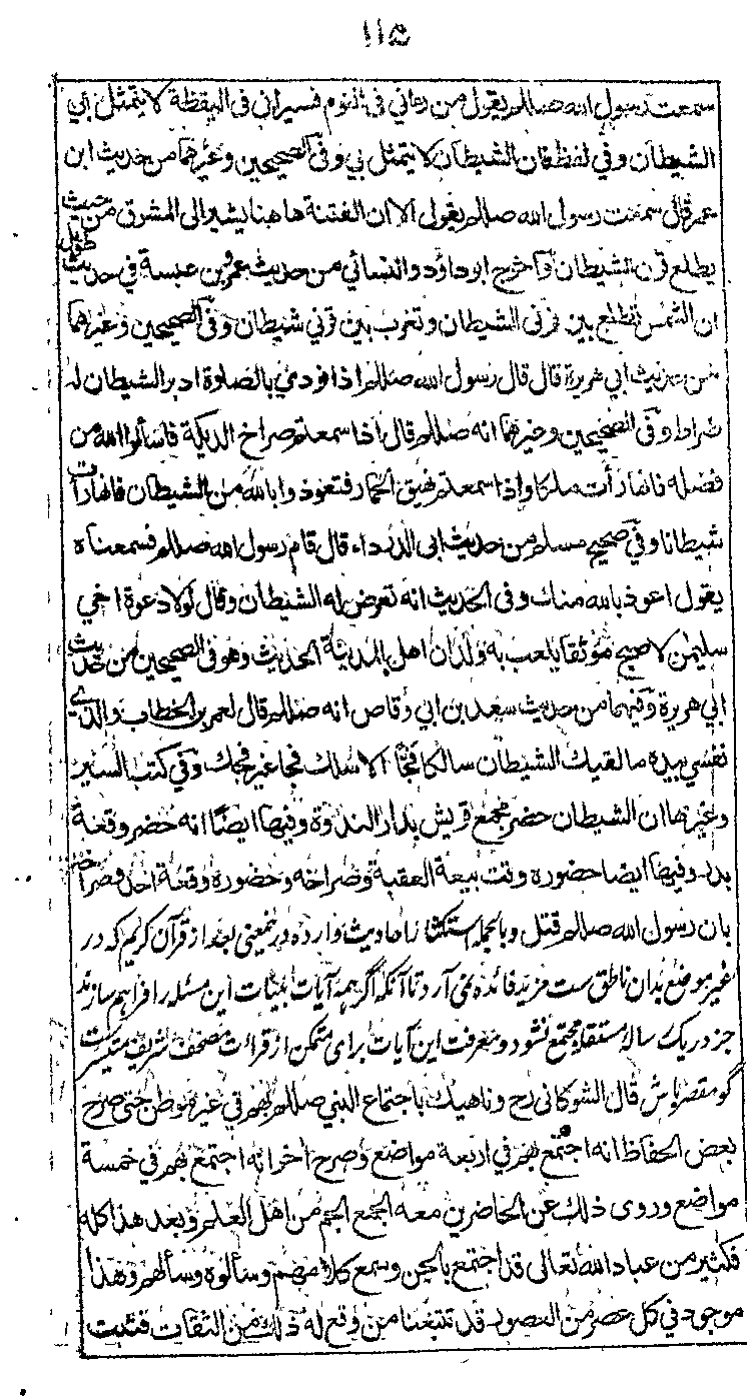 ١١٥
سمعت رسول الله صللم يقول من رءاني في النوم فسيراني في اليقظة لا يتمثل بي
الشيطان وفي لفظ فان الشيطان لا يتمثل بي وفي الصحيحين وغيرهما من حديث ابن
عمر قال سمعت رسول الله صللم يقول الا ان الفتنة ها هنا يشير الى المشرق من حيث
يطلع قرن الشيطان وأخرج ابو داؤد والنسائي من حديث عمرو بن عبسة في حديث طويل
ان الشمس تطلع بين قرني الشيطان وتغرب بين قرني شيطان وفي الصحيحين وغيرهما
من حديث ابي هريرة قال قال رسول الله صللم اذا نودي بالصلوة ادبر الشيطان له
ضراط وفي الصحيحين وغيرهما انه صللم قال اذا سمعتم صراخ الديكة فاسألوا الله من
فضله فانها رأت ملكا واذا سمعتم نهيق الحمار فتعوذوا بالله من الشيطان فانها رأت
شيطانا وفي صحيح مسلم من حديث ابي الدرداء قال قام رسول الله صللم فسمعناه
يقول اعوذ بالله منك وفي الحديث انه تعرض له الشيطان وقال لولا دعوة اخي
سليمن لاصبح موثقا يلعب به ولدان اهل المدينة الحديث وهو في الصحيحين من حديث
ابي هريرة وفيهما من حديث سعد بن ابي وقاص انه صللم قال لعمر بن الخطاب والذي
نفسي بيده ما لقيك الشيطان سالكا فجّا الا سلك فجا غير فجك وفي كتب السير
وغيرها ان الشيطان حضر مجمع قريش بدار الندوة وفيها ايضًا انه حضر وقعة
بدر وفيها ايضا حضوره وقت بيعة العقبة وصراخه وحضوره وقعة احد وصراخه
بان رسول الله صللم قتل وبالجمله استكثار احاديث وارده درينمعنى بعد از قرآن كريم كه در
غير موضع بدان ناطق ست مزيد فائده نمى آرد تا آنكه اگر همه آيات بينات اين مسئله را فراهم سازند
جز در يك ساله مستقله مجتمع نشود ومعرفت اين آيات براى متمكن از قراءت مصحف شريف متيسرست
گو مقصر باش قال الشوكانى رح وناهيك باجتماع النبي صللم بهم في غير موطن حتى صرح
بعض الحفاظ انه اجتمع بهم في اربعة مواضع وصرح اخر انه اجتمع بهم في خمسة
مواضع وروى ذلك عن الحاضرين معه الجمع الجم من اهل العلم وبعد هذا كله
فكثير من عباد الله تعالى قد اجتمع بالجن وسمع كلامهم وسألوه وسألهم وهذا
موجود في كل عصر من العصور قد تتبعنا من وقع له ذلك من الثقات فثبت